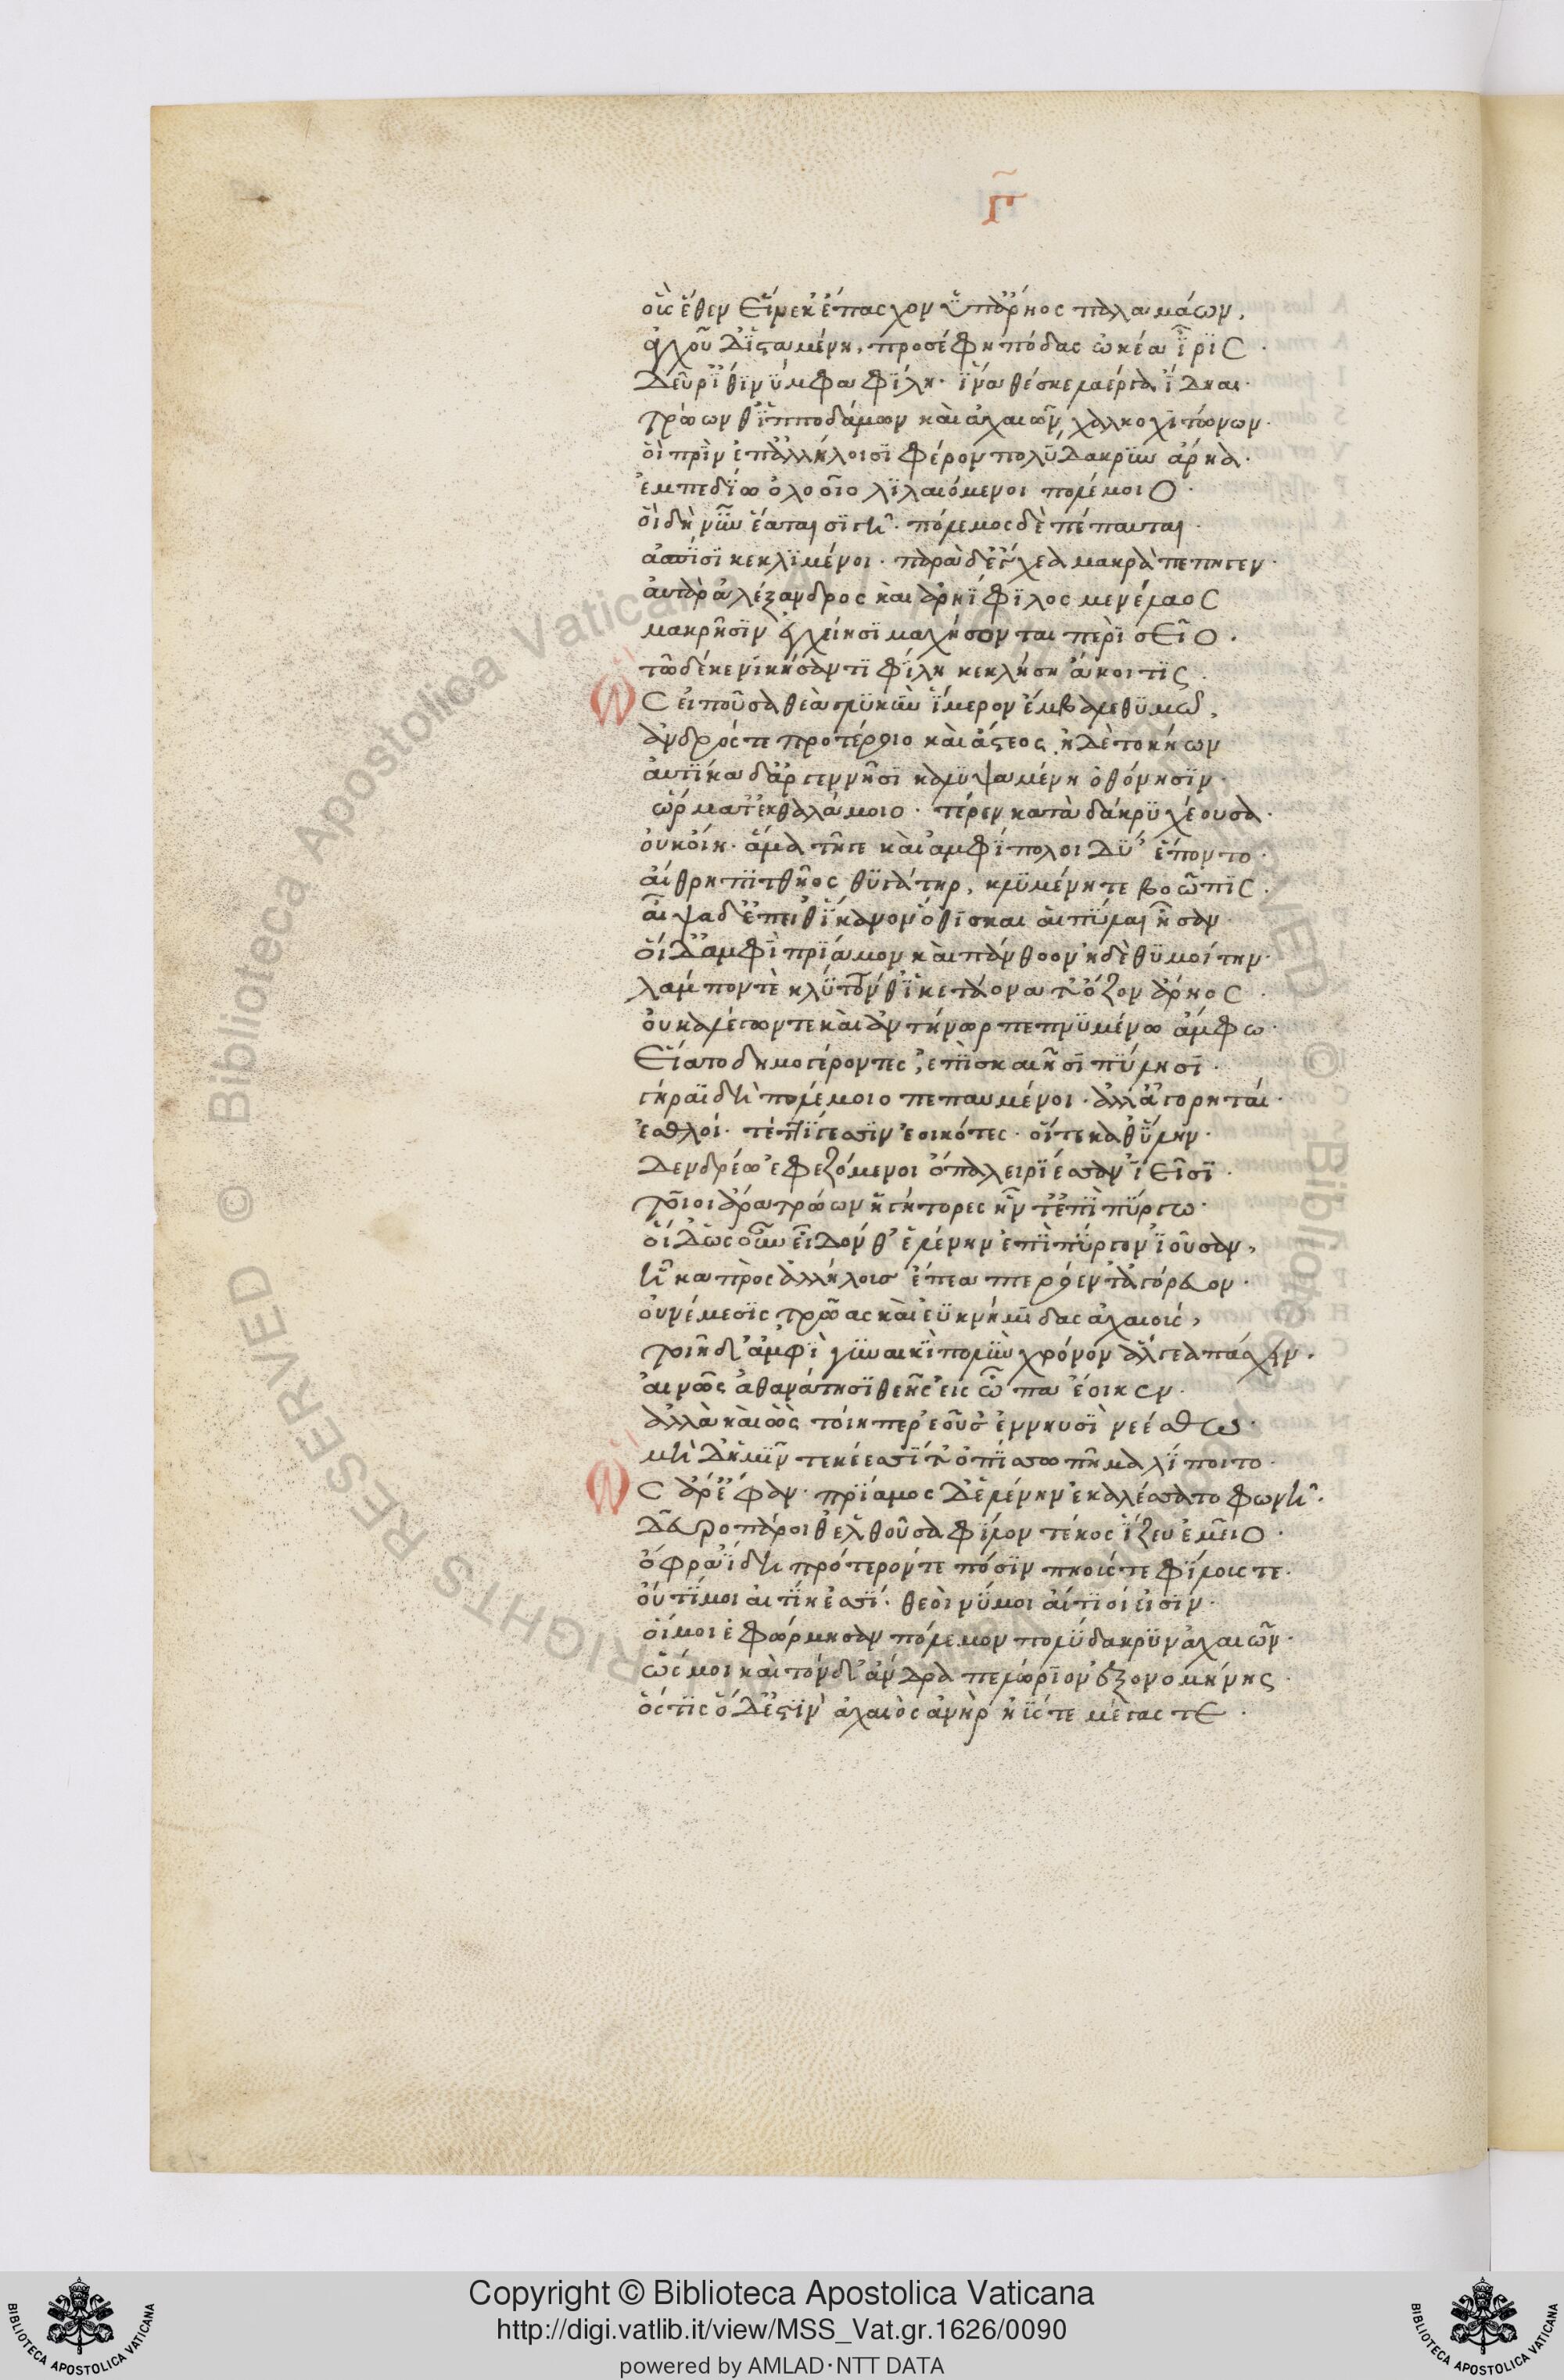 Γ
οὓς ἕθεν εἵνεκ' ἔπασχον ὑπ' ἄρηος παλαμάων,
ἀγχοῦ δ' ἱσταμένη, προσέφη πόδας ὠκέα ἶρις.
δεῦρ' ἴθι νύμφα φίλη· ἵνα θέσκελα ἔργα ἴδηαι·
τρώων θ' ἱπποδάμων καὶ ἀχαιῶν χαλκοχιτώνων·
οἳ πρὶν ἐπ' ἀλλήλοισι φέρον πολύδακρυν ἄρηα·
ἐν πεδίω ὀλοοῖο λιλαιόμενοι πολέμοιο·
οἳ δὴ νῦν ἕαται σιγῆ· πόλεμος δὲ πέπαυται·
ἀσπίσι κεκλιμένοι· παρὰ δ' ἔγχεα μακρὰ πέπηγεν·
αὐτὰρ ἀλέξανδρος καὶ ἀρηΐφιλος μενέλαος
μακρῆσιν ἐγχείησι μαχήσονται περὶ σεῖο.
τῶ δέ κε νικήσαντι φίλη κεκλήση ἄκοιτις.
Ὣς εἰποῦσα θεὰ γλυκὺν ἵμερον ἔμβαλε θυμῶ,
ἀνδρός τε προτέροιο καὶ ἄστεος ἠδὲ τοκήων
αὐτίκα δ' ἀργεννῆσι καλυψαμένη ὀθόνησιν·
ὡρμᾶτ' ἐκ θαλάμοιο· τέρεν κατὰ δάκρυ χέουσα·
οὐκ οἴη· ἅμα τῆγε καὶ ἀμφίπολοι δύ' ἕποντο·
αἴθρη πιτθῆος θυγάτηρ, κλυμένη τε βοῶπις.
αἶψα δ' ἔπειθ' ἵκανον ὅθι σκαιαὶ πύλαι ἦσαν·
οἱ δ' ἀμφὶ πρίαμον καὶ πάνθοον ἠδὲ θυμοίτην·
λάμπον τὲ κλυτόν θ' ἱκετάονα τ' ὄζον ἄρηος.
οὐκαλέγων τε καὶ ἀντήνωρ πεπνυμένω ἄμφω·
εἵατο δημογέροντες, ἐπὶ σκαιῆσι πύλησι·
γήραϊ δὴ πολέμοιο πεπαυμένοι· ἀλλ' ἀγορηταί·
ἐσθλοί· τεττίγεσσιν ἐοικότες· οἵτε καθ' ὕλην·
δενδρέω ἐφεζόμενοι ὄπα λειριόεσσαν ἱεῖσι·
τοῖοι ἄρα τρώων ἡγήτορες ἧντ' ἐπὶ πύργω·
οἱ δ' ὡς οὖν εἶδον θ' ἑλένην ἐπὶ πύργον ἰοῦσαν,
ἦκα πρὸς ἀλλήλους ἔπεα πτερόεντ' ἀγόρευον·
οὐ νέμεσις τρῶας καὶ ἐϋκνήμιδας ἀχαιούς,
τοιῆδ' ἀμφὶ γυναικὶ πολὺν χρόνον ἄλγεα πάσχειν.
αἰνῶς ἀθανάτησι θεῆς εἰς ὦπα ἔοικεν.
ἀλλὰ καὶ ὧς τοίη περ ἐοῦσ' ἐν νηυσὶ νεέσθω·
μὴ δ' ἡμῖν τεκέεσσί τ' ὀπίσσω πῆμα λίποιτο·
Ὣς ἄρ' ἔφαν· πρίαμος δ' ἑλένην ἐκαλέσσατο φωνῆ.
δεῦρο πάροιθ' ἐλθοῦσα φίλον τέκος ἵζευ ἐμεῖο·
ὄφρα ἴδη πρότερόν τε πόσιν πηούς τε φίλους τε·
οὔτί μοι αἰτίη ἐσσί· θεοὶ νύ μοι αἴτιοί εἰσιν·
οἵ μοι ἐφώρμησαν πόλεμον πολύδακρυν ἀχαιῶν·
ὥς μοι καὶ τόνδ' ἄνδρα πελώριον ἐξονομήνης·
ὅστις ὅδ' ἐστὶν ἀχαιὸς ἀνὴρ ἠΰς τε μέγας τε·
Copyright © Biblioteca Apostolica Vaticana
http://digi.vatlib.it/view/MSS_Vat.gr.1626/0090
powered by AMLAD·NTT DATA